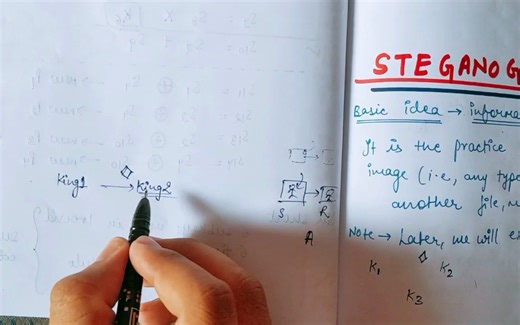 King1 → King2
S R
A
STEGANOG
Basic idea → informa
It is the practice
image (i.e., any type
another file, m
Note → Later, we will e
K1 K2
K3